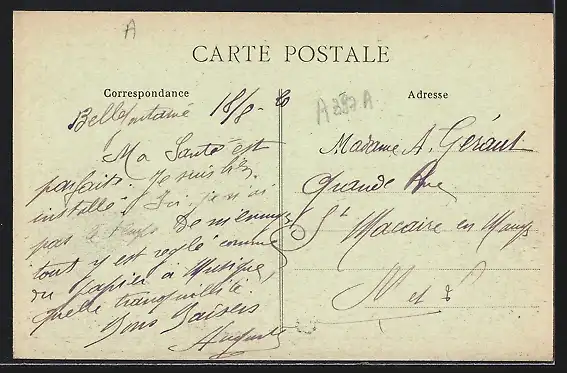 A
CARTE POSTALE
Correspondance
Bellefontaine 18/8-20
Ma Santé est
parfaite. Je suis bien
installé. Ici, je n'ai
pas le temps De m'ennuyer
tout y est reglé comme
du Papier à Musique,
quelle tranquillité.
Bons Baisers
Auguste
A 297 A
Adresse
Madame A. Géraut
Grande Rue
St Macaire en Mauges
M et L